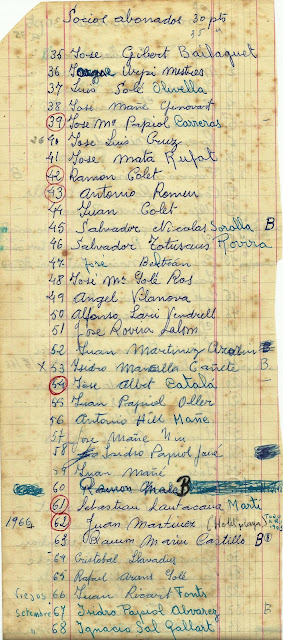 Socios abonados 30 pts
35 "
35 Jose Gibert Bailaquet
36 Urpi Mestres
37 Luis Solé Olivella
38 José Mañé Ginovart
39 Jose Mª Papiol Carreras
40 Jose Luis Cruz
41 José Mata Rufat
42 Ramon Colet
43 Antonio Romeu
44 Juan Colet
45 Salvador Nicolas Sorolla B
46 Salvador Totusaus Rovira
47 Jose Beltrán
48 José Mª Solé Ros
49 Angel Vilanova
50 Alfonso Vendrell
51 Jose Rovira
52 Juan Martinez
X 53 Isidro Cañete B
54 Jose Albet Català
55 Juan Papiol Oller
56 Antonio Hill Mañe
57 Jose Mañe
58 Isidro Papiol José
59 Juan Mañé
60 Ramon B
61 Sebastian Lautacara Martí
1966 62 Juan Martinez (Hotel playa)
63 Ramon Marin Castillo B
64 Cristobal Llavador
65 Rafael Arans Solé
66 Juan Ricart Fonts
Setembre 67 Isidro Papiol Alvarez B
" 68 Ignacio Sal Gallart